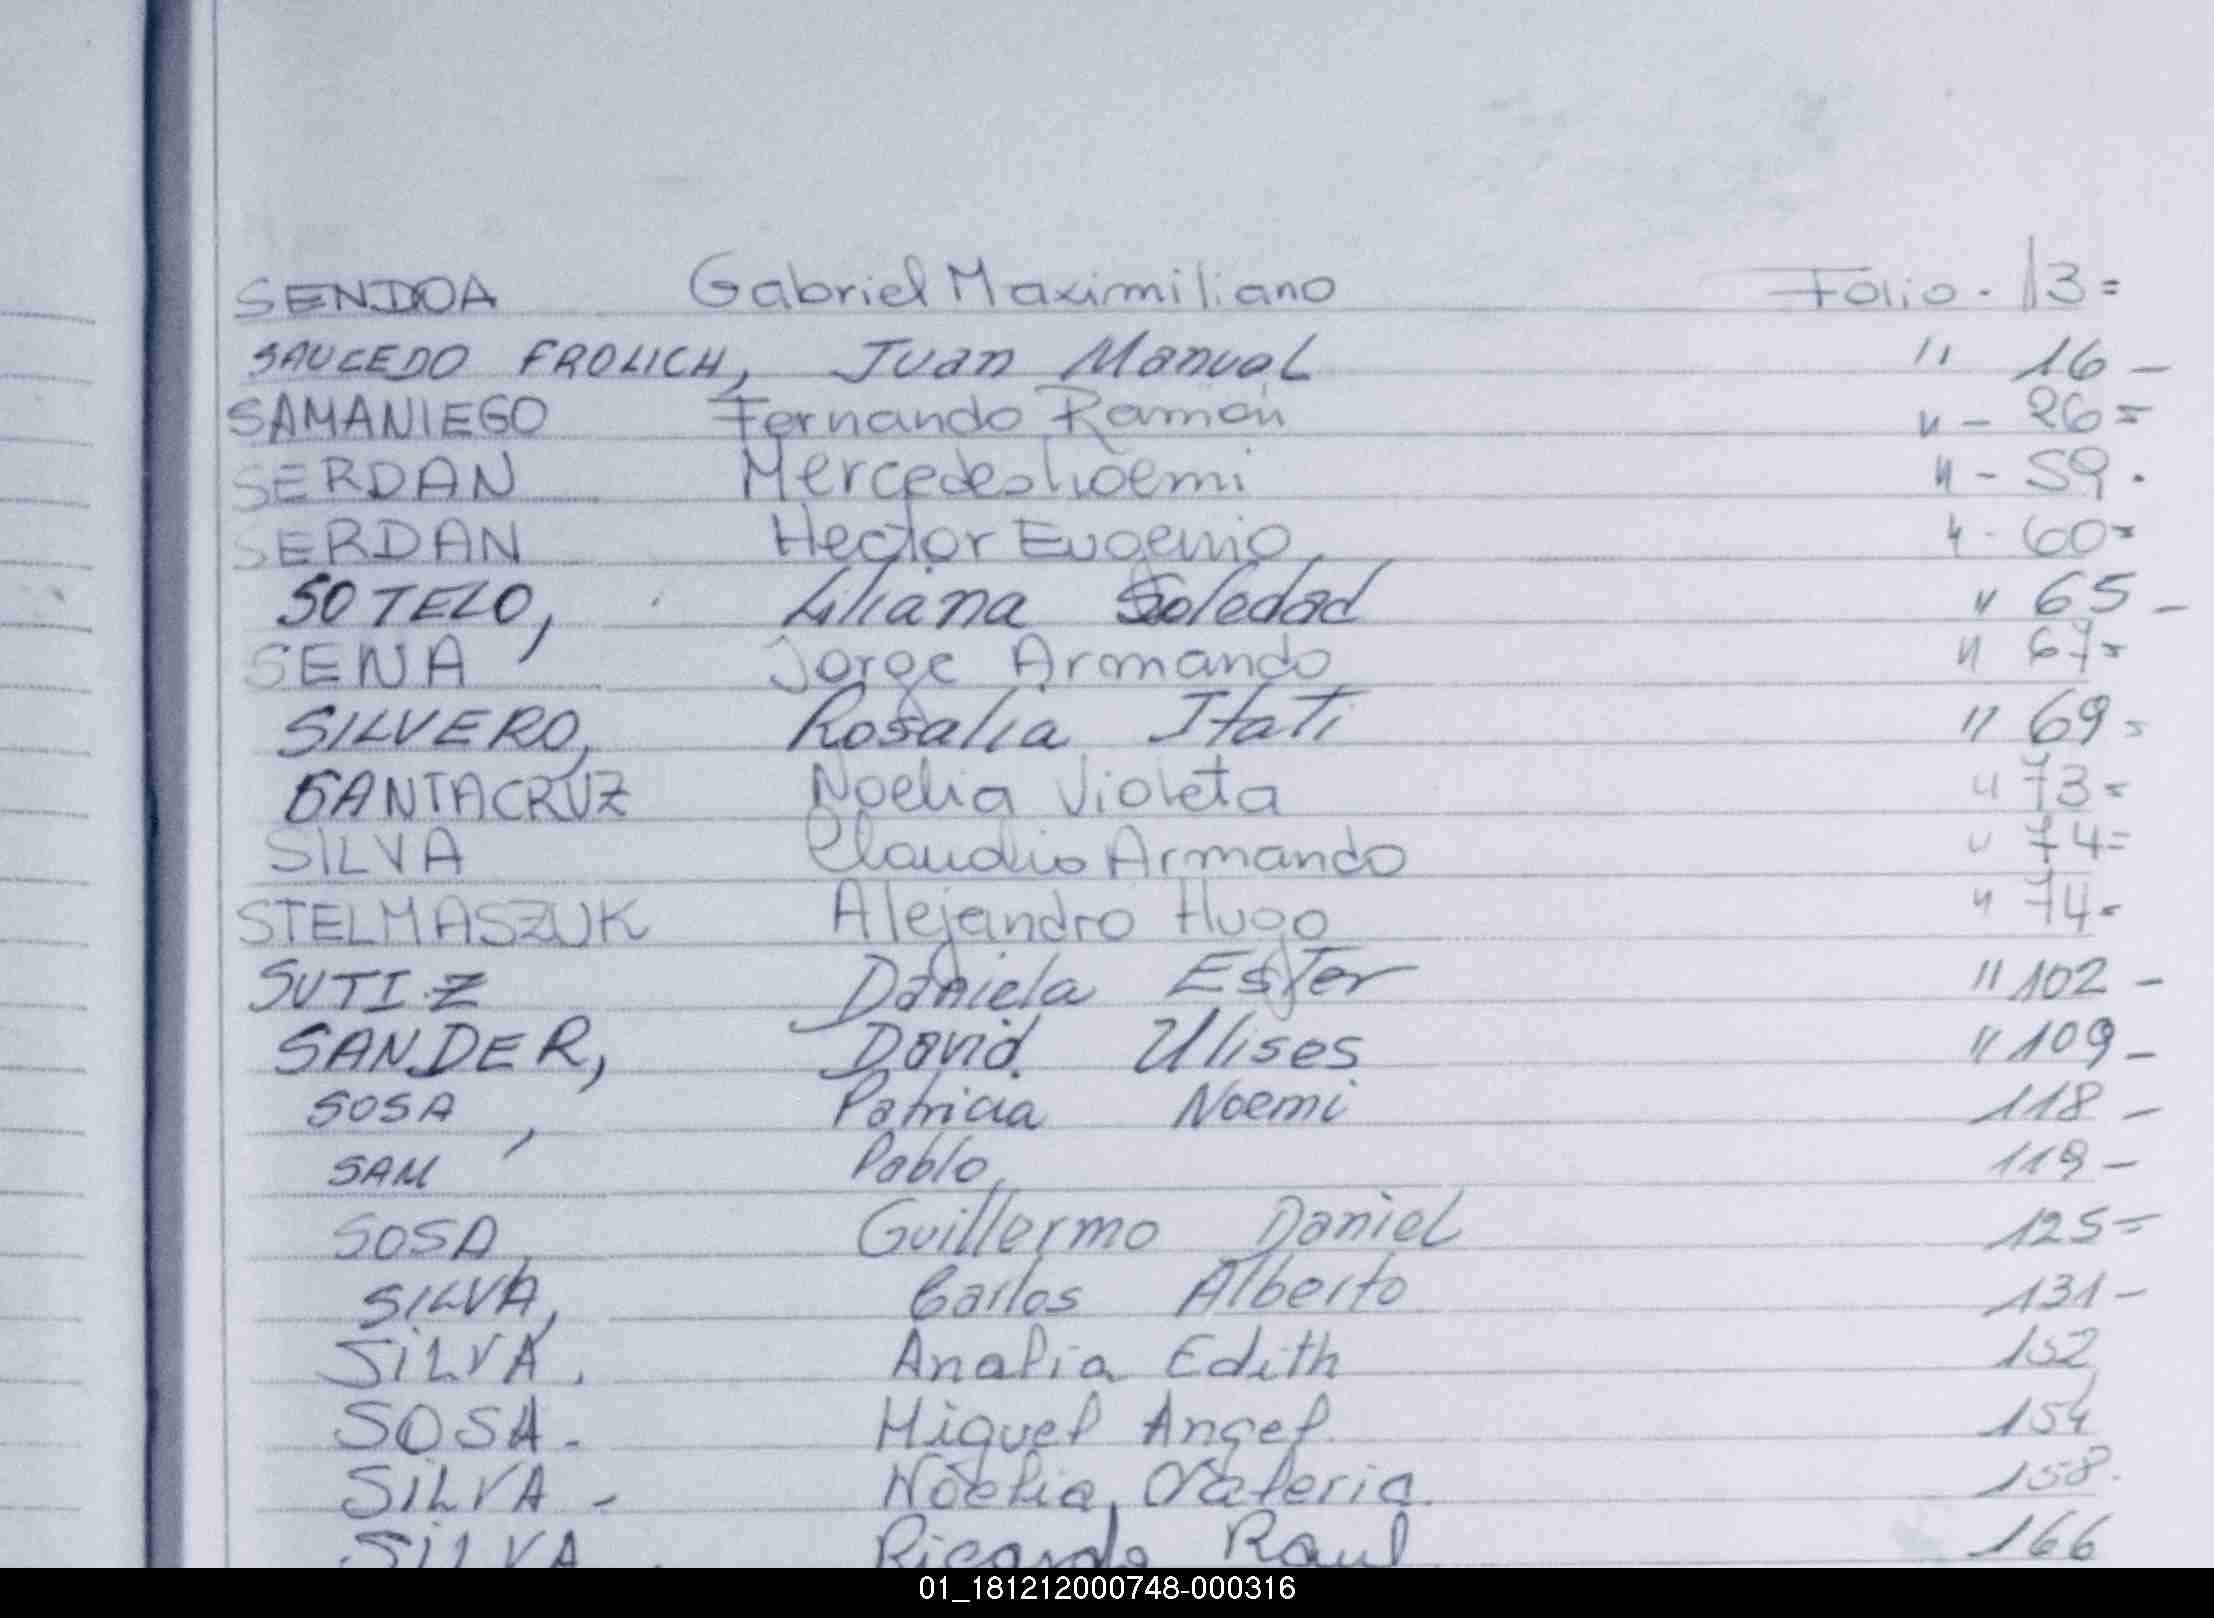 SENDOA Gabriel Maximiliano Folio. 13=
SAUCEDO FROLICH, Juan Manuel " 16-
SAMANIEGO Fernando Ramón " - 26=
SERDAN Mercedes Noemi " - 59.
SERDAN Hector Eugenio " - 60=
SOTELO, Liliana Soledad " 65-
SENA Jorge Armando " 67=
SILVERO, Rosalia Itati " 69=
SANTACRUZ Noelia Violeta " 73=
SILVA Claudio Armando " 74=
STELMASZUK Alejandro Hugo " 74=
SUTIZ Daniela Ester " 102-
SANDER, David Ulises " 109-
SOSA, Patricia Noemi 118-
SAM Pablo 119-
SOSA, Guillermo Daniel 125=
SILVA, Carlos Alberto 131-
SILVA. Analia Edith 152
SOSA. Miguel Angel. 154
SILVA - Noelia Valeria. 158.
SILVA. Ricardo Raul 166
01_181212000748-000316